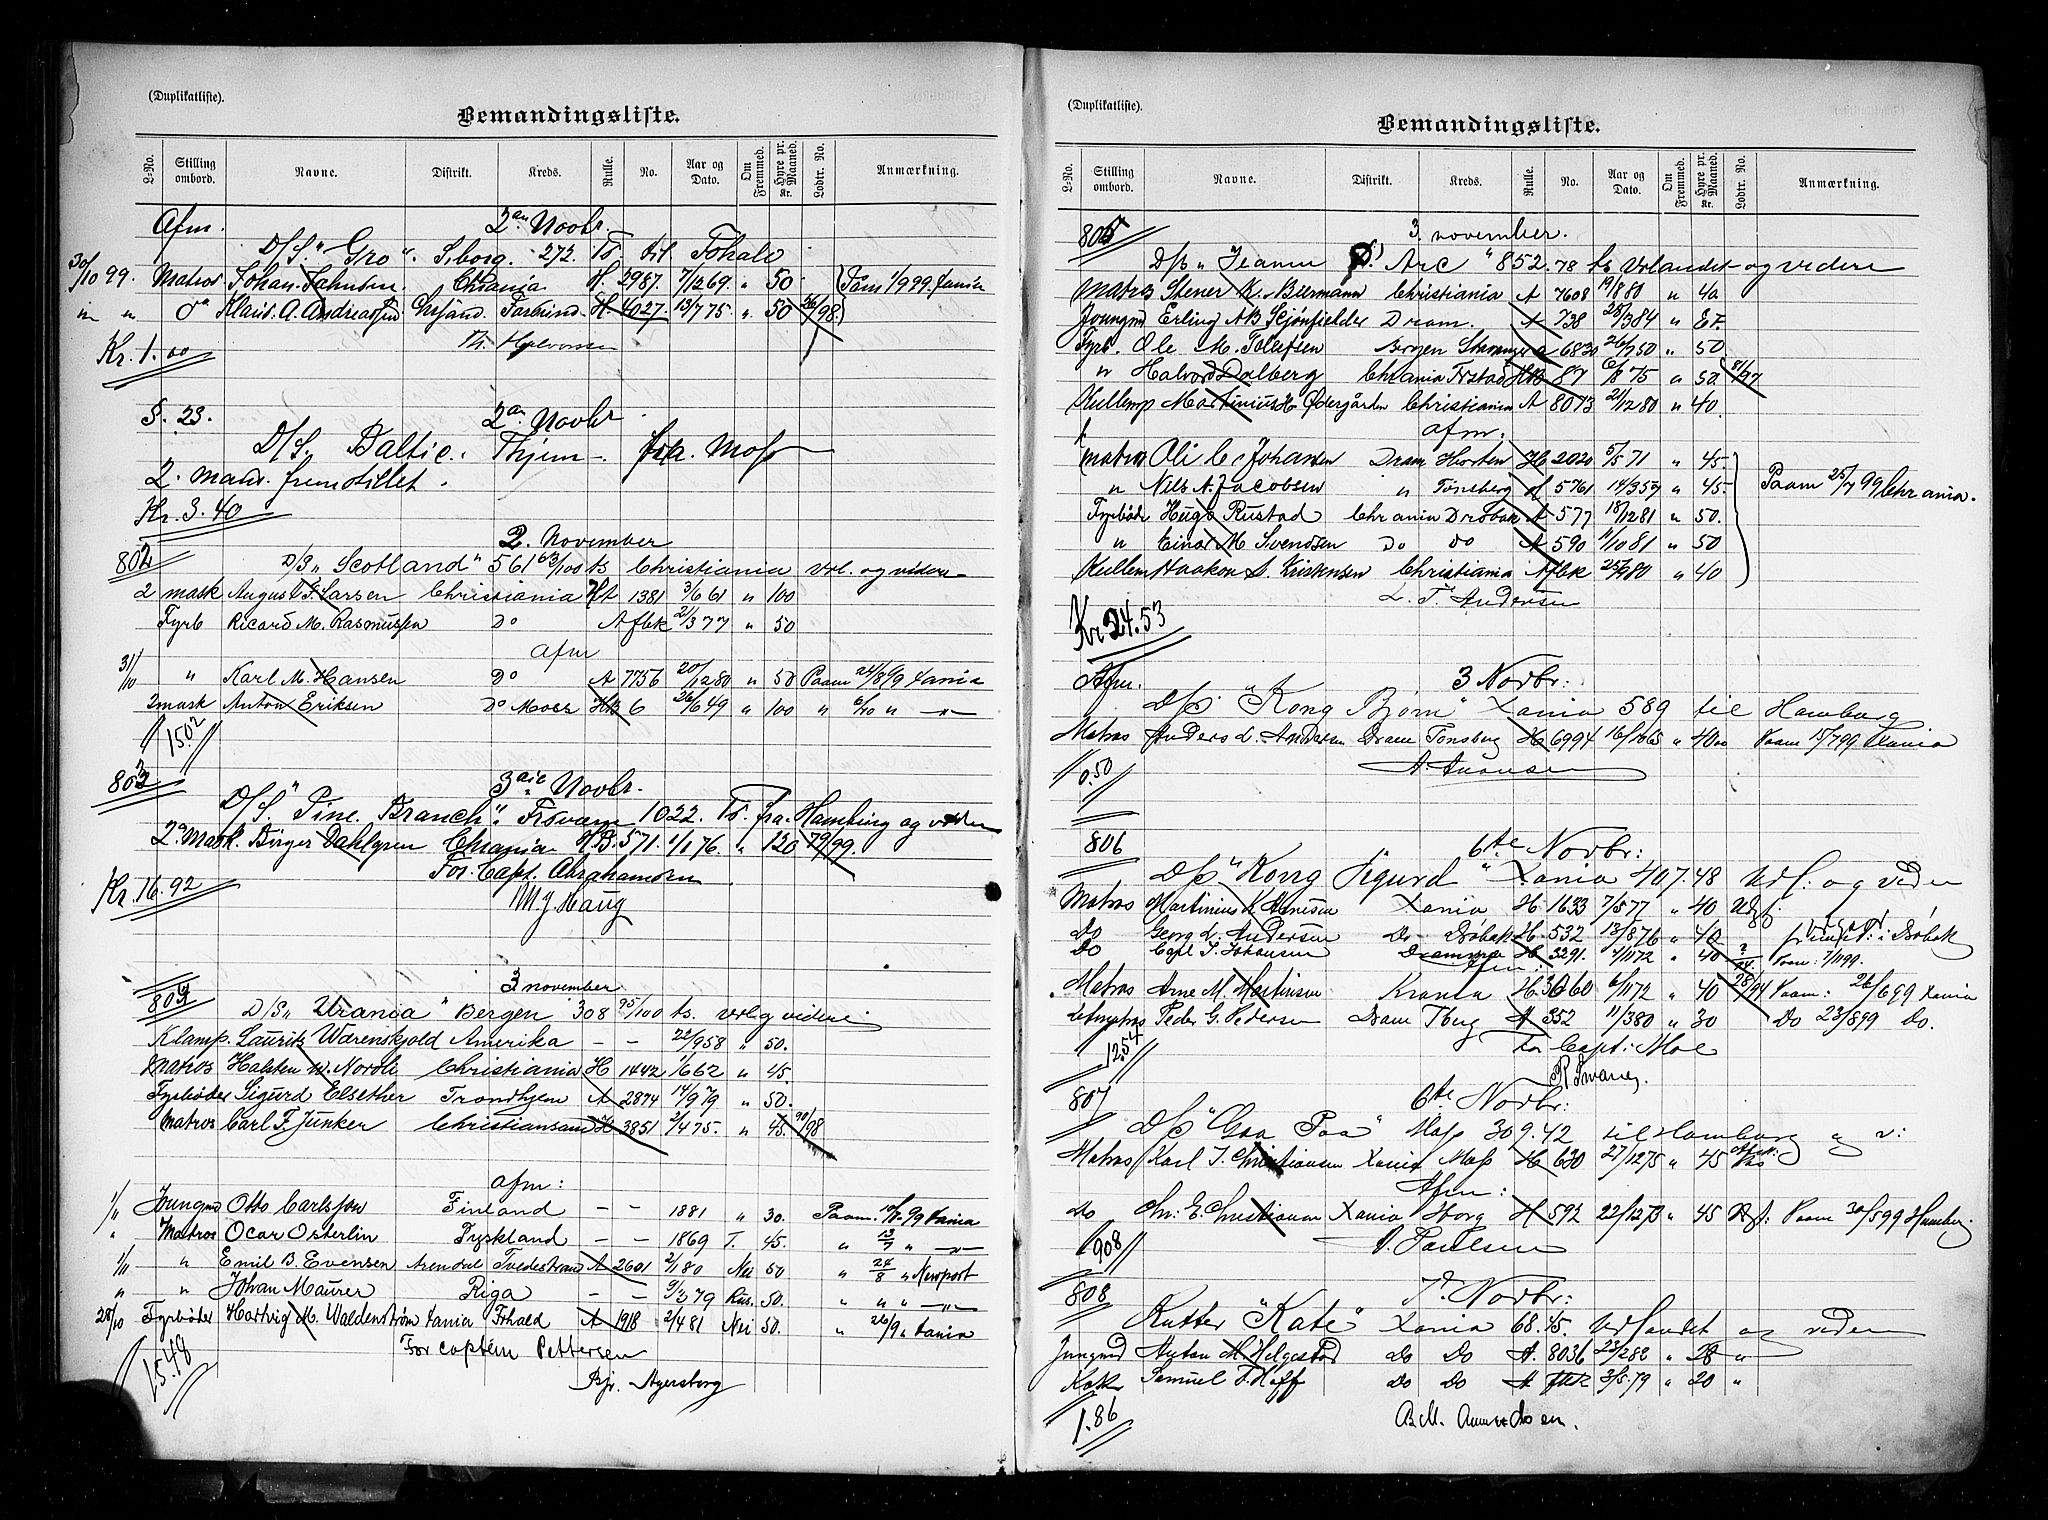 (Duplikatliste).
Bemandingsliste.
L-No. Stilling ombord. Navne. Distrikt. Kreds. Rulle. No. Aar og Dato. Om Fremmed. Hyre pr. Maaned. Kr. Lodtr. No. Anmærkning.
Afm. 2en Novbr.
D/S. "Gro" 272. Ts til
30/10 99. Matros Johan Johnsen Chrania H. 2987. 7/12 69 " 50
" " do Klaus A. Andreassen Chrsand Farsund H. 4027. 13/7 75 " 50 26/98
Th. Halvorsen
Kr. 1.00
§. 23. 2en Novbr.
D/S. Baltic. Thjem fra Moss
2. mand. fremstillet.
Kr. 3.40
2. November
802 D/S "Scotland" 561 63/100 ts Christiania Url. og videre
2 mask August F. Larsen Christiania HA 1381 3/6 61 " 100
Fyrb Ricard M. Rasmussen Do Afbk 21/3 77 " 50
afm
31/10 " Karl M. Hansen Do A 7756 20/12 80 " 50 Paam 24/8 99 Xania
2 mask Anton Eriksen Do Moss HB 6 26/6 49 " 100 " 6/10 " "
15.02
803 3die Novbr.
D/S "Pine Branch" 1022. Ts. fra Hamburg og videre
2. Mask. Birger Dahlgren Chrania H.B. 571. 1/1 76. " 120 79/99.
For Capt. Abrahamsen
M. J. Haug
Kr. 16.92
3 november
804 D/S "Urania" Bergen 308 95/100 ts. Url og videre
Klamp. Lauritz Wærenskjold Amerika — — 22/9 58 " 50.
Matros Halsten W. Nordli Christiania H 1442 1/6 62 " 45.
Fyrbøder Sigurd Elsether Trondhjem A 2874 14/9 79 " 50.
Matros Carl F. Junker Christiansand H 3851 2/4 75. " 45. 90/98
afm:
1/11 Jungmd Otto Carlsson Finland — — 1881 " 30. Paam. 99 Xania
" Matros Ocar Osterlin Tyskland — — 1869 T. 45. " 13/7 " "
1/11 " Emil B. Evensen Arendal Tvedestrand A 2601 2/1 80 Nei 50 " 24/8 " Newport
" " Johan Maurer Riga — — 9/3 79 Rus. 50. " " " "
28/10 Fyrbøder Hartvig M. Waldenstrøm Xania Fhald A 1918 2/4 81 Nei 50. " 26/9 " Xania
For captein Pettersen
15.48
Bjr. Agersborg
(Duplikatliste).
Bemandingsliste.
L-No. Stilling ombord. Navne. Distrikt. Kreds. Rulle. No. Aar og Dato. Om Fremmed. Hyre pr. Maaned. Kr. Lodtr. No. Anmærkning.
805 3. november.
D/S "Jeanne D' Arc" 852.78 ts Urlandet og videre
Matros Stener K. Biermann Christiania A 7608 19/8 80 " 40
Joungmd Erling AB Skjønfjelder Dram. A 738 28/3 84 " Et.
Fyrb. Ole M. Tollefsen Bergen Stavanger A 6830 26/9 50 " 50
" Halvord Dalberg Chrania Frstad HB 87 6/8 75 " 50 81/97
Kullemp Martinius H. Ødegården Christiania A 8073 21/12 80 " 40.
afm.
Matros Oli C. Johansen Dram Horten H 2020 5/5 71 " 45.
" Nils A. Jacobsen " Tønsberg H 5761 14/3 57 " 45. Paam 25/7 99 Chrania.
Fyrbøder Hugo Rustad Chrania Drøbak A 577 18/12 81 " 50.
" Einar M. Svendsen Do Do A 590 11/10 81 " 50
Kullem Haakon S. Kristensen Christiania Afbk 25/9 80 " 40
L. T. Andersen
Kr 24.53
Afm. 3 Novbr:
D/S: "Kong Bjørn" Xania 589 til Hamburg
Matros Anders L. Andersen Dram Tønsberg H 6994 16/10 65 " 40.00 Paam 15/7 99 Xania
0.50
806 6te Novbr:
D/S "Kong Sigurd" Xania 407.48 Udl: og viden
Matros Martinius K. Arnesen Xania H. 1633 7/5 77 " 40 Udf:
Do Georg L. Andersen Do Drøbak H. 532 13/8 76 " 40 i Drøbak
Do Carl J. Johansen Drammen H 3291. 4/11 72 " 40 Paam: 7/11 99.
Afm:
Matros Arne M. Martinsen Krania H 3060 6/11 72 " 40 28/94 Paam: 26/6 99 Xania
Letmatros Peder G. Pedersen Dram Tberg A 352 11/3 80 " 30 Do 23/8 99 Do.
For Capt: Moe
12.54
807 6te Novbr:
D/S "Gaa Paa" Moss 309.42 til Hamburg og v:
Matros Karl J. Christiansen Xania Moss H 630 27/12 75 " 45
Afm:
Do Chr. E. Christiansen Xania Hborg H 592 22/12 73 " 45 Udf: Paam 30/5 99 Hamburg
V. Paulsen
9.08
808 7de Novbr:
Kutter "Kate" Xania 68.45. Udlandet og viden
Jungmd Anton M. Helgestad Do Do A. 8036 23/2 82 " 28 "
Kok Samuel F. Hoff Do Do A Afbk 3/5 79 " 20 "
1.86
B. M. Amundsen.